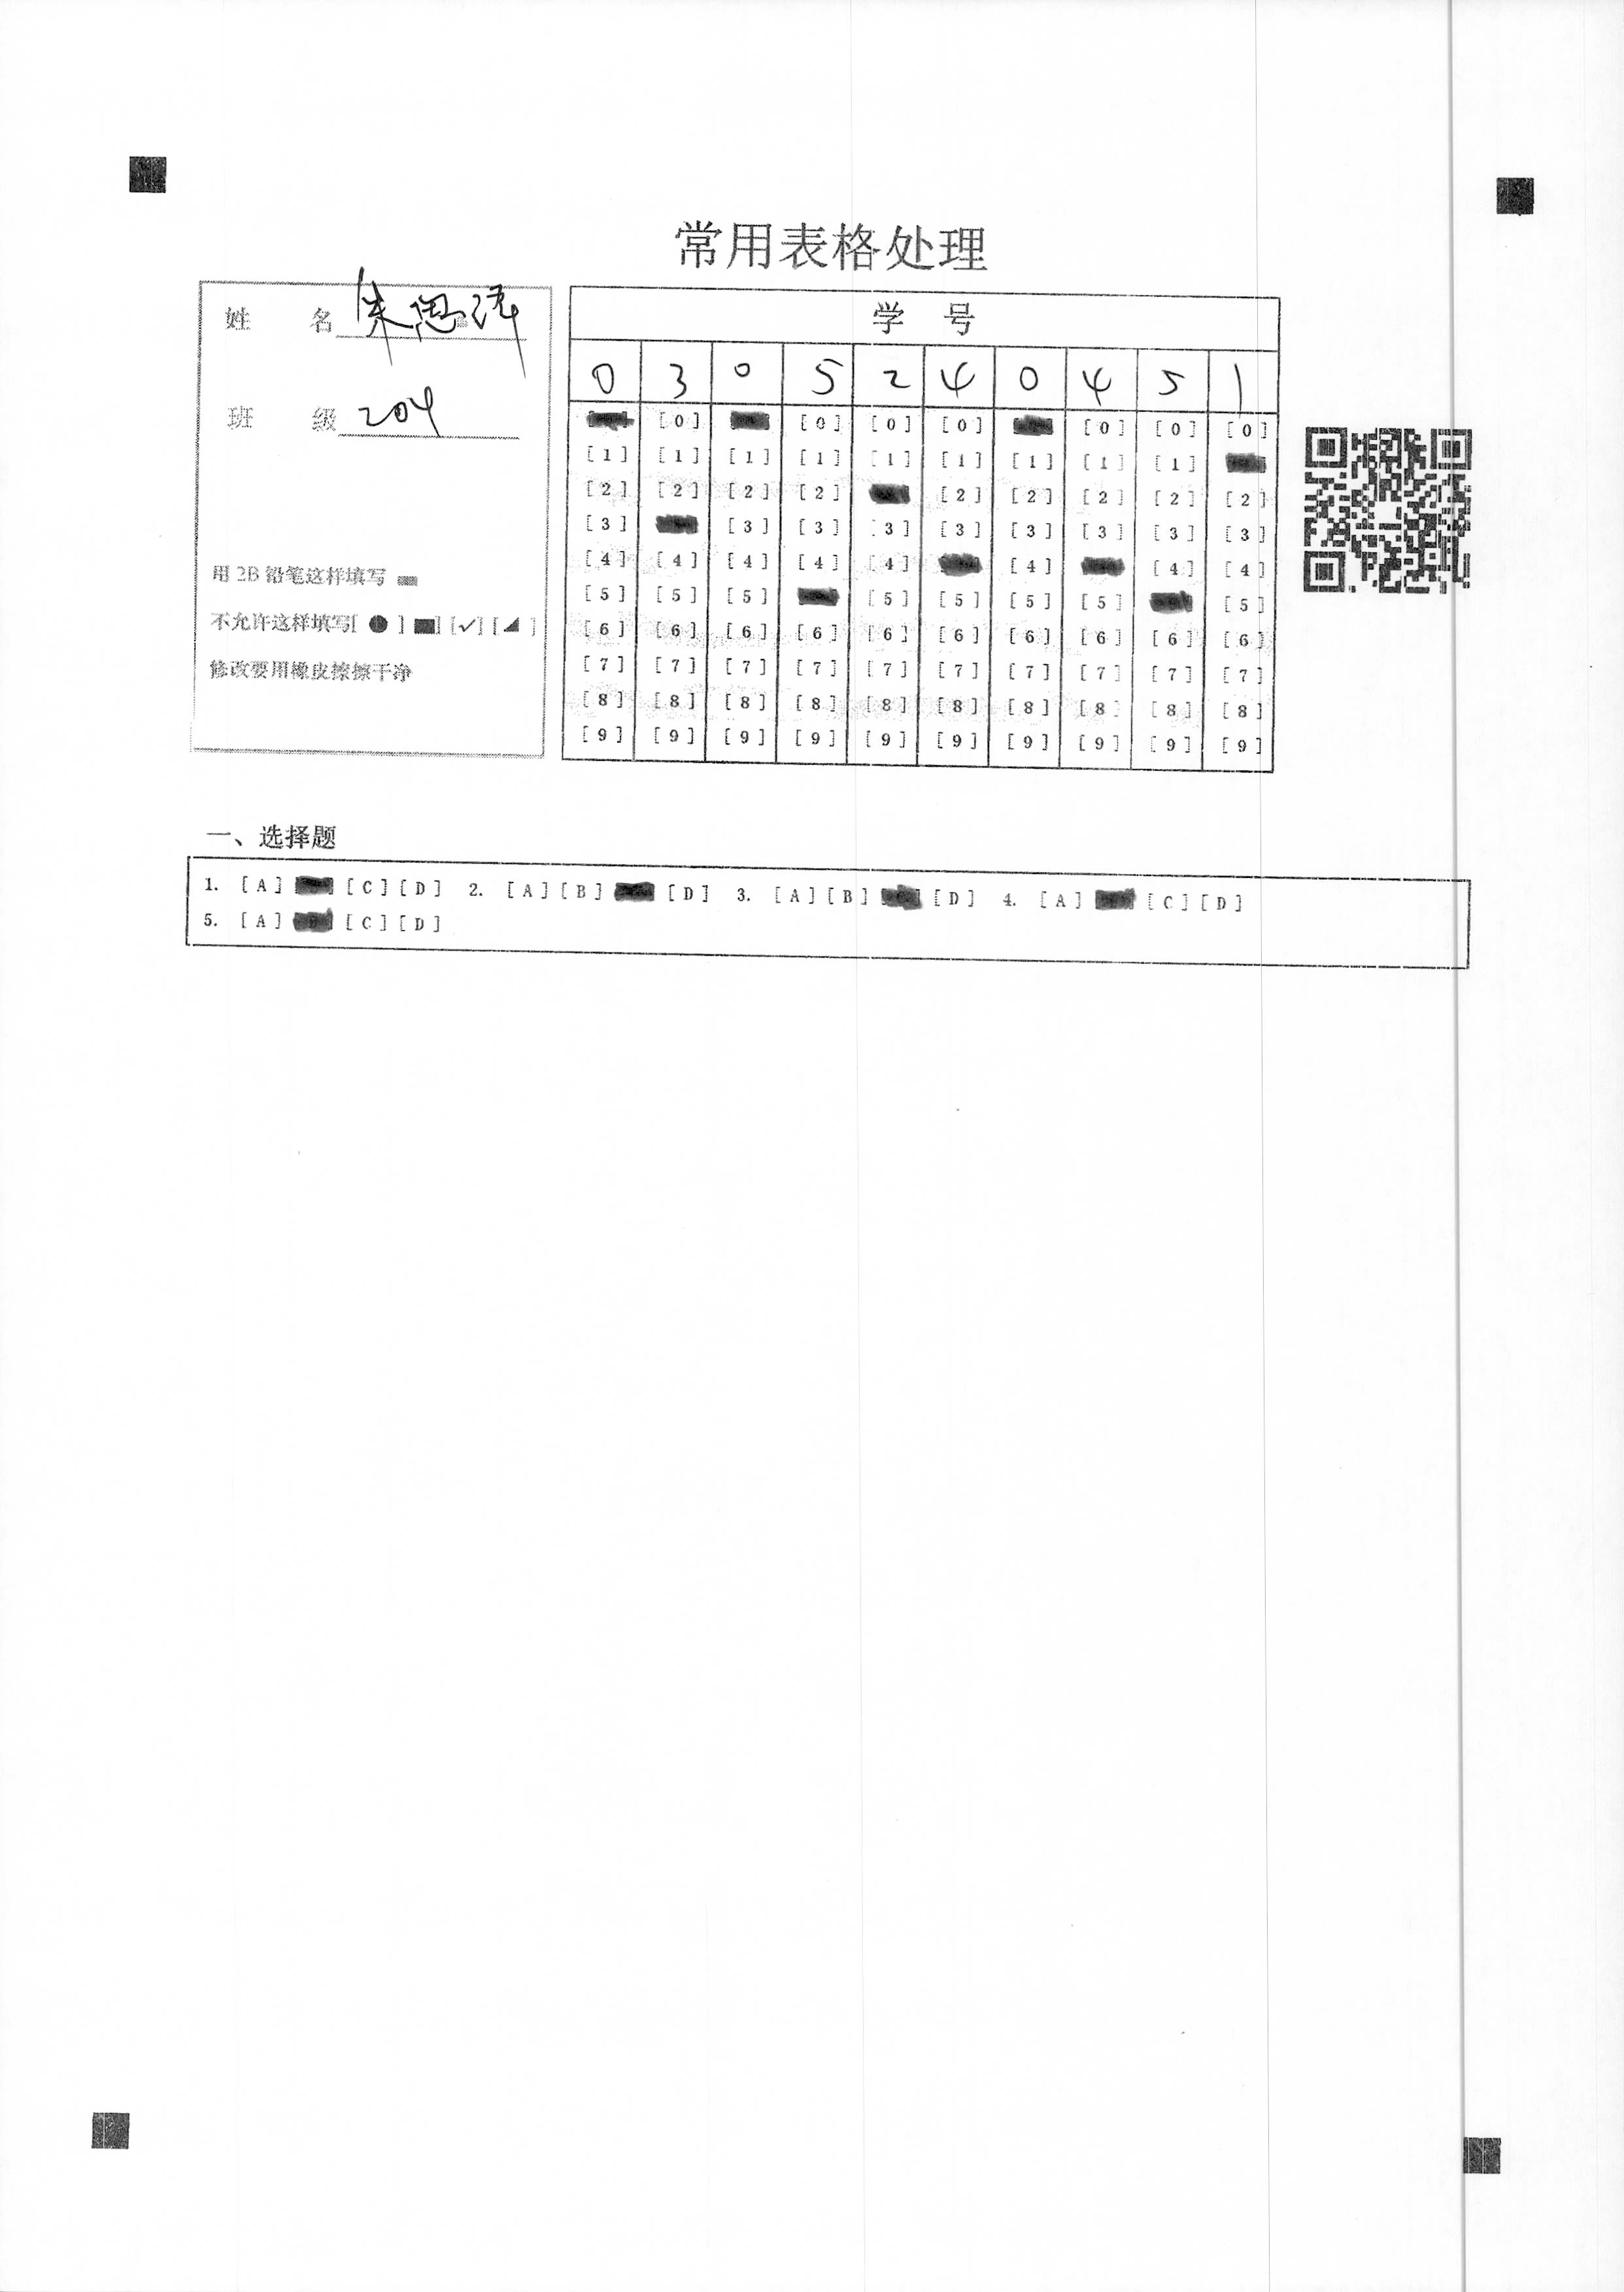 常用表格处理
姓 名 朱思
班 级 204
用 2B 铅笔这样填写
不允许这样填写[ ● ] [✓] [ ]
修改要用橡皮擦擦干净
学 号
0 3 0 5 2 4 0 4 5 1
[0] [0] [0] [0] [0] [0] [0]
[1] [1] [1] [1] [1] [1] [1] [1] [1]
[2] [2] [2] [2] [2] [2] [2] [2] [2]
[3] [3] [3] [3] [3] [3] [3] [3] [3]
[4] [4] [4] [4] [4] [4] [4] [4]
[5] [5] [5] [5] [5] [5] [5] [5]
[6] [6] [6] [6] [6] [6] [6] [6] [6] [6]
[7] [7] [7] [7] [7] [7] [7] [7] [7] [7]
[8] [8] [8] [8] [8] [8] [8] [8] [8] [8]
[9] [9] [9] [9] [9] [9] [9] [9] [9] [9]
一、选择题
1. [A] [C] [D] 2. [A] [B] [D] 3. [A] [B] [D] 4. [A] [C] [D]
5. [A] [C] [D]